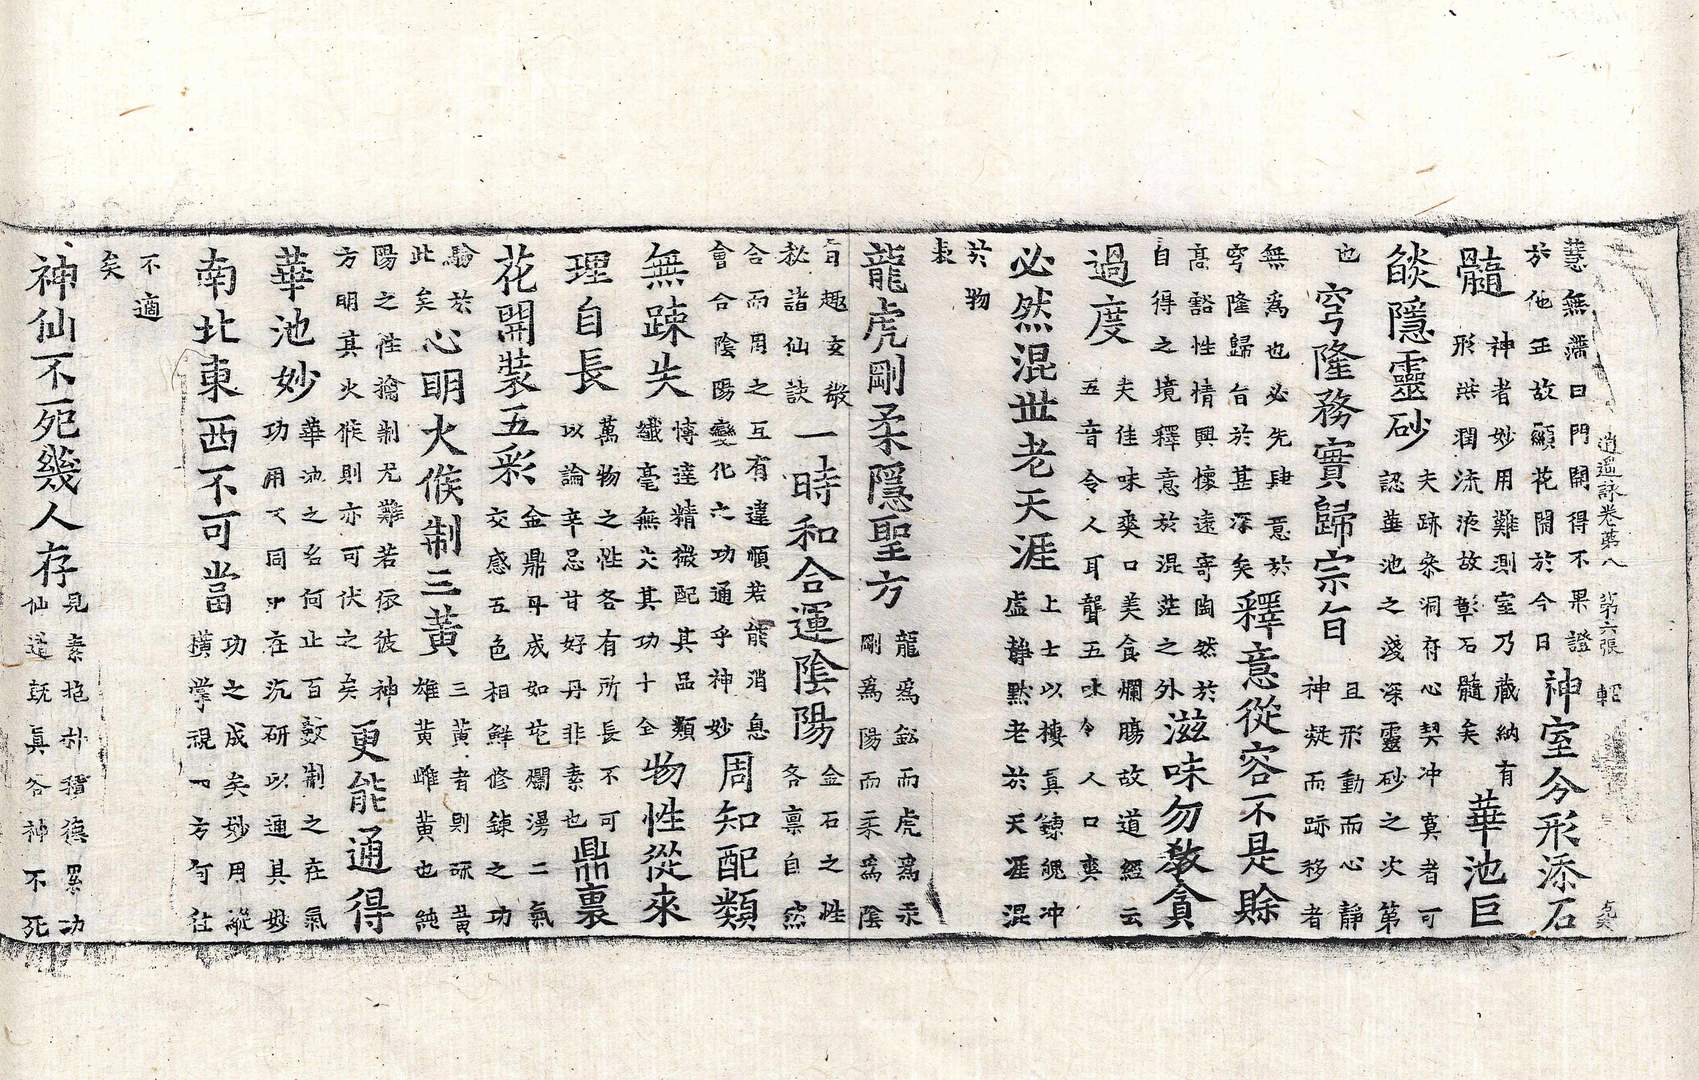 逍遙詠卷第八 第六張 輕
慧無濁曰門開得不果證
於他正故顯花開於今日
神室今形添石
髓
神者妙用難測室乃藏納有
形洪潤流液故彰石髓矣
華池巨
燄隱靈砂
夫跡叅洞府心契冲寞者可
認華池之淺深靈砂之次第
也
穹隆務實歸宗旨
且形動而心靜
神凝而跡移者
無爲也必先肆意於
穹隆歸旨於甚深矣
釋意從容不是賖
高豁性情興懷遠寄陶然於
自得之境釋意於混茫之外
滋味勿教貪
過度
夫佳味爽口美食爛腸故道經云
五音令人耳聾五味令人口爽
必然混世老天涯
上士以棲真鍊魄冲
虛靜默老於天涯混
於物
表
龍虎剛柔隱聖方
龍爲鈆而虎爲汞
剛爲陽而柔爲陰
旨趣玄微
秘諸仙訣
一時和合運陰陽
金石之性
各禀自然
合而用之互有違順若能消息
會合陰陽變化之功通乎神妙
周知配類
無踈失
博達精微配其品類
纎毫無欠其功十全
物性從來
理自長
萬物之性各有所長不可
以論辛忌甘好丹非素也
鼎裏
花開裝五彩
金鼎丹成如花爛漫二氣
交感五色相鮮修鍊之功
驗於
此矣
心明火候制三黃
三黃者則硫黃
雄黃雌黃也純
陽之性擒制尤難若依彼神
方明其火候則亦可伏之矣
更能通得
華池妙
華池之名何止百數制之在氣
功用不同只在沉研以通其妙
南北東西不可當
功之成矣妙用縱
橫掌視一方何往
不適
矣
神仙不死幾人存
見素抱朴積德累功
仙道既真谷神不死